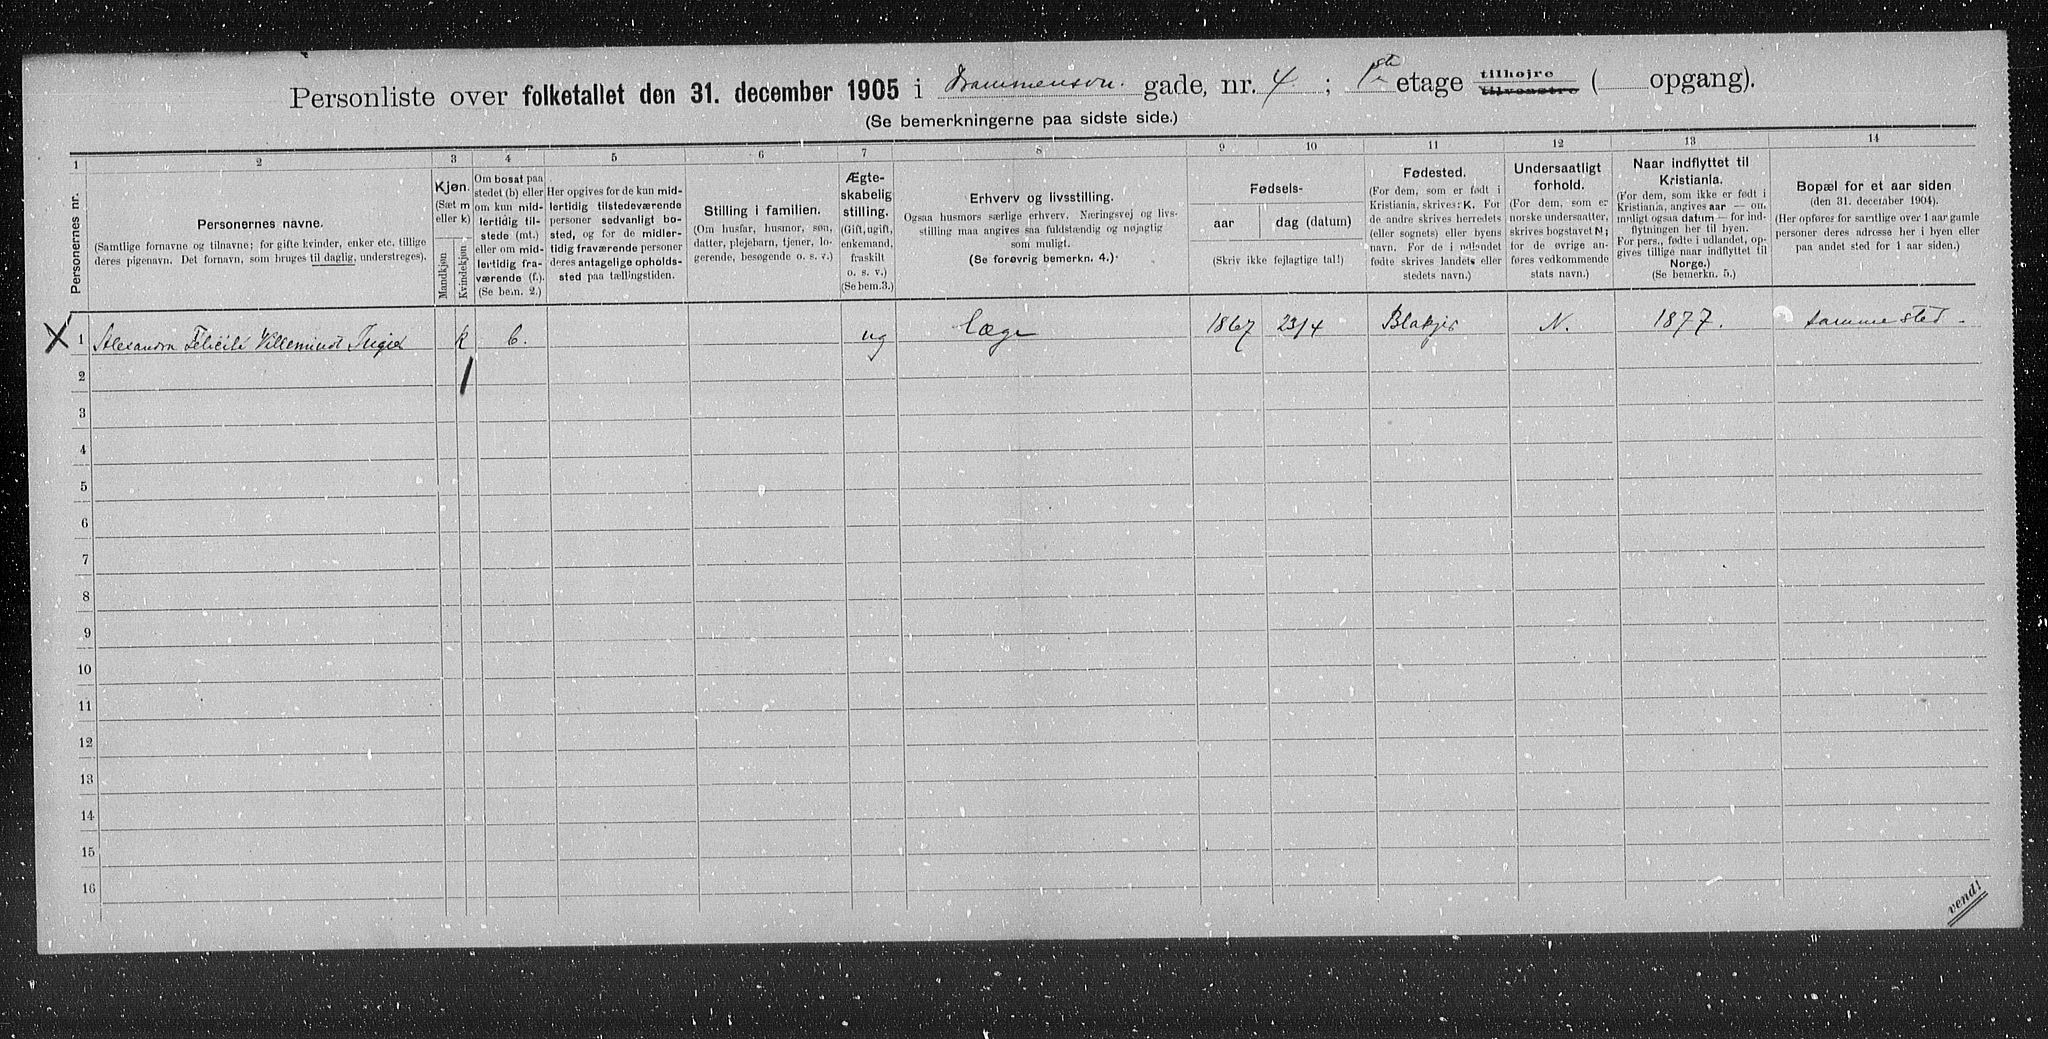 Personliste over folketallet den 31. december 1905 i Drammensv. gade, nr. 4 ; 1ste etage tilhøjre tilvenstre ( opgang).
(Se bemerkningerne paa sidste side.)
1 2 3 4 5 6 7 8 9 10 11 12 13 14
Personernes nr.
Personernes navne.
(Samtlige fornavne og tilnavne; for gifte kvinder, enker etc. tillige
deres pigenavn. Det fornavn, som bruges til daglig, understreges).
Kjøn.
(Sæt m
eller k)
Mandkjøn
Kvindekjøn
Om bosat paa
stedet (b) eller
om kun mid-
lertidig til-
stede (mt.)
eller om mid-
lertidig fra-
værende (f.).
(Se bem. 2.)
Her opgives for de kun mid-
lertidig tilstedeværende
personer sedvanligt bo-
sted, og for de midler-
tidig fraværende personer
deres antagelige opholds-
sted paa tællingstiden.
Stilling i familien.
(Om husfar, husmor, søn,
datter, plejebarn, tjener, lo-
gerende, besøgende o. s. v.)
Ægte-
skabelig
stilling.
(Gift, ugift,
enkemand,
fraskilt
o. s. v.)
(Se bem.3.)
Erhverv og livsstilling.
Ogsaa husmors særlige erhverv. Næringsvej og livs-
stilling maa angives saa fuldstændig og nøjagtig
som muligt.
(Se forøvrig bemerkn. 4.)
Fødsels-
aar
dag (datum)
(Skriv ikke fejlagtige tal!)
Fødested.
(For dem, som er født i
Kristiania, skrives: K. For
de andre skrives herredets
(eller sognets) eller byens
navn. For de i udlandet
fødte skrives landets eller
stedets navn.)
Undersaatligt
forhold.
(For dem, som er
norske undersaatter,
skrives bogstavet N;
for de øvrige an-
føres vedkommende
stats navn.)
Naar indflyttet til
Kristiania.
(For dem, som ikke er født i
Kristiania, angives aar — om
muligt ogsaa datum — for ind-
flytningen her til byen.
For pers., fødte i udlandet, op-
gives tillige naar indflyttet til
Norge.)
(Se bemerkn. 5.)
Bopæl for et aar siden
(den 31. december 1904).
(Her opføres for samtlige over 1 aar gamle
personer deres adresse her i byen eller
paa andet sted for 1 aar siden.)
X 1 Alexandra k b. ug læge 1867 23/4 Blakjer N. 1877. samme sted.
2
3
4
5
6
7
8
9
10
11
12
13
14
15
16
vend!